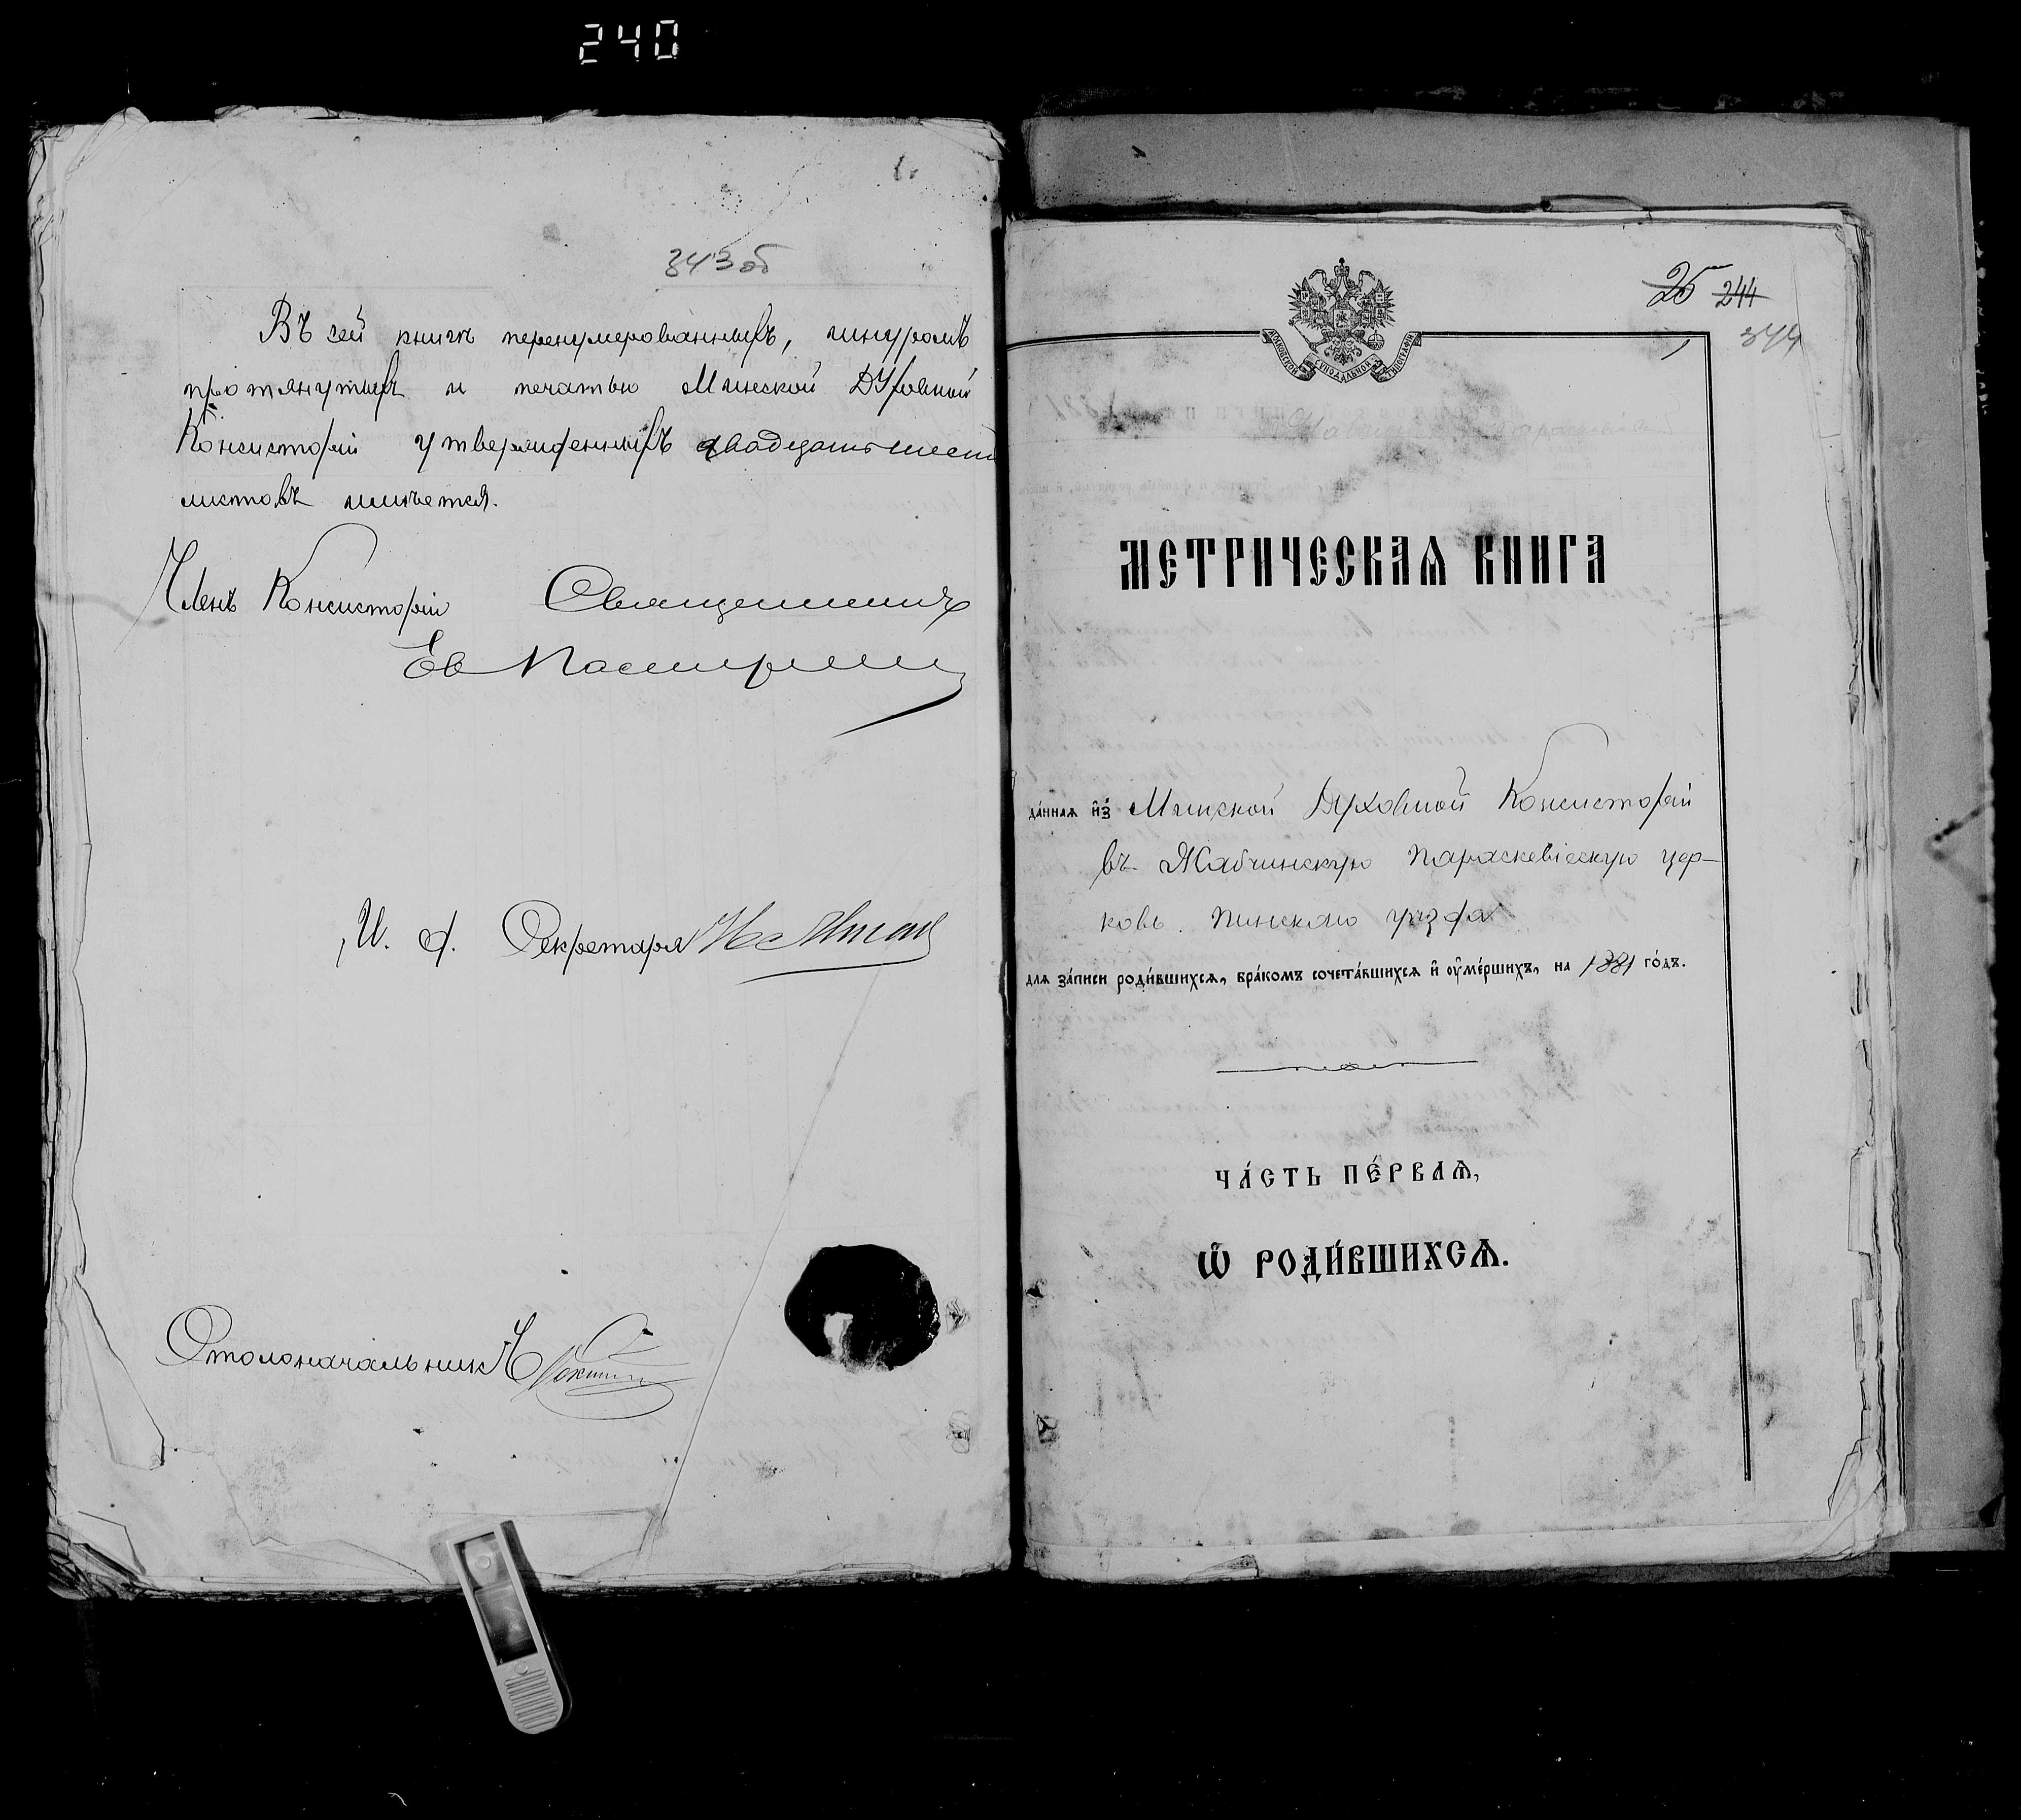 240
343 об
Въ сей книгѣ перенумерованныхъ, шнуромъ
протянутыхъ и печатью Минской Духовной
Консисторіи утвержденныхъ двадцать шесть
листовъ имѣется.
Членъ Консисторіи Священникъ
И. д. Секретаря
Столоначальникъ
25 244
344
МОСКОВСКОЙ СѴНОДАЛЬНОЙ ТИПОГРАФІИ
МЕТРИЧЕСКАѦ КНИГА
да́ннаѧ и҆з̾ Минской Духовной Консисторіи
въ Жабчинскую Параскевіескую цер-
ковь Пинскаго уѣзда
длѧ за́писи роди́вшихсѧ, бра́комъ сочета́вшихсѧ и҆ ᲂу҆ме́ршихъ, на 1881 го́дъ.
ЧА́СТЬ ПЕ́РВАѦ,
Ѽ РОДИ́ВШИХСѦ.